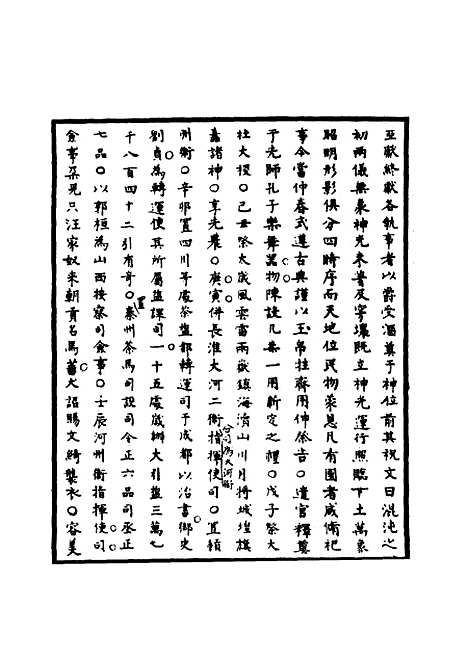 亞獻終獻各執事者以爵受酒奠于神位前其祝文曰混沌之
初兩儀無象神光未著及穹壤既立神光運行照臨下土萬象
昭明形影俱分四時序而天地位民物蕃息凡有國者咸脩祀
事今當仲春式遵古典謹以玉帛牲齊用伸祭告○遣官釋奠
于先師孔子樂舞器物陳設凡祭一用新定之禮○戊子祭大
社大稷○己丑祭太歲風雲雷雨嶽鎮海瀆山川月將城隍旗
纛諸神○享先農○庚寅併長淮大河二衛指揮使司○置
合司為大河衛
州衛○辛卯置四川等處茶鹽都轉運司于成都以治書御史
劉貞為轉運使其所屬鹽課司一十五處歲辦大引鹽三萬七
千八百四十二引有奇○置秦州茶馬司設司令正六品司丞正
七品○以郭桓為山西按察司僉事○壬辰河州衛指揮使司
僉事朵兒只汪家奴來朝貢名馬蕃犬詔賜文綺襲衣○容美